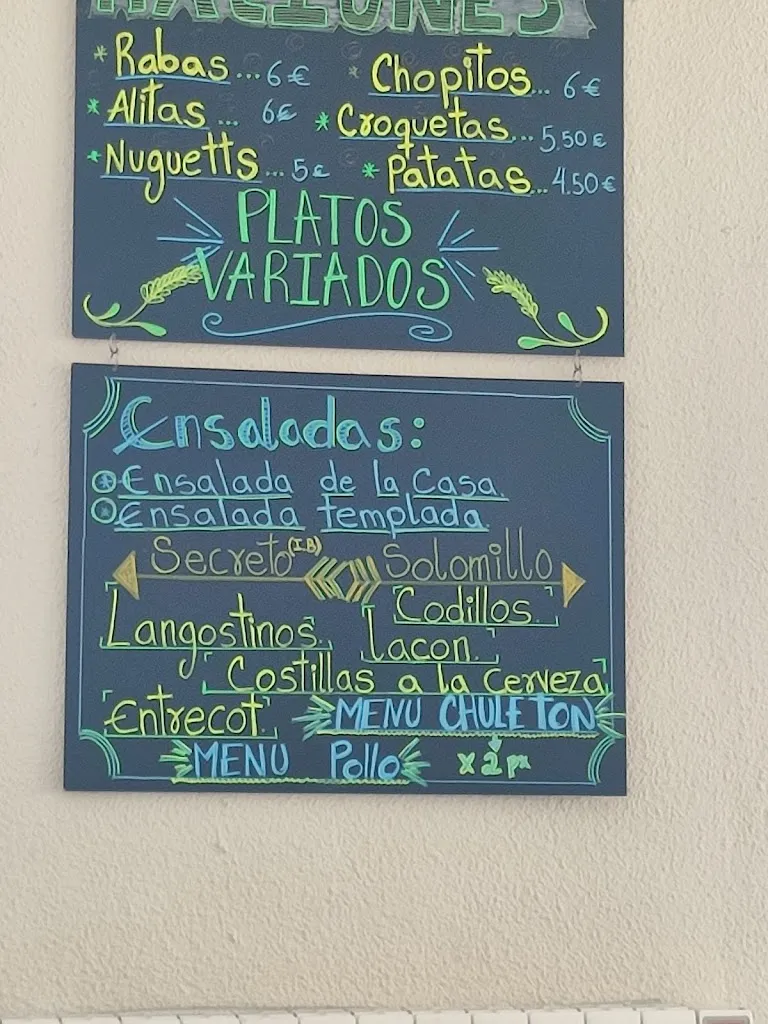 RACIONES
* Rabas ... 6€ * Chopitos... 6€
* Alitas ... 6€ * Croquetas... 5,50€
* Nuguetts ... 5€ * Patatas... 4.50€
PLATOS
VARIADOS
Ensaladas:
* Ensalada de la Casa.
Ensalada templada.
Secreto (IB) Solomillo
Codillos.
Langostinos. Lacon.
Costillas a la cerveza
Entrecot. MENU CHULETON
MENU Pollo x 2 px